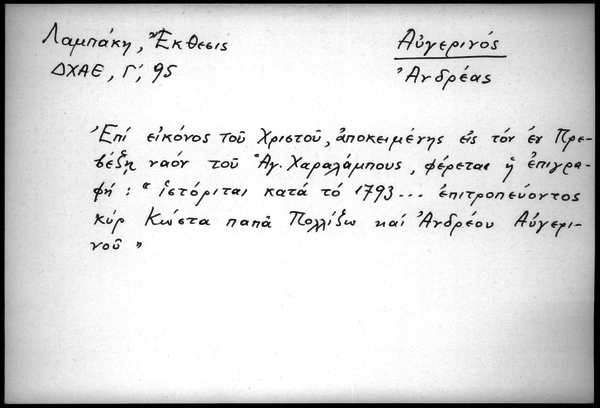 Λαμπάκη, Ἔκθεσις
Αὐγερινός
ΔΧΑΕ, Γ', 95
Ἀνδρέας
Ἐπί εἰκόνος τοῦ Χριστοῦ, ἀποκειμένης εἰς τόν ἐν Πρε-
βέζῃ ναόν τοῦ Ἁγ. Χαραλάμπους, φέρεται ἡ ἐπιγρα-
φή: "ἱστόριται κατά τό 1793... ἐπιτροπεύοντος
κύρ Κώστα παπᾶ Πολλίζω καί Ἀνδρέου Αὐγερι-
νοῦ"